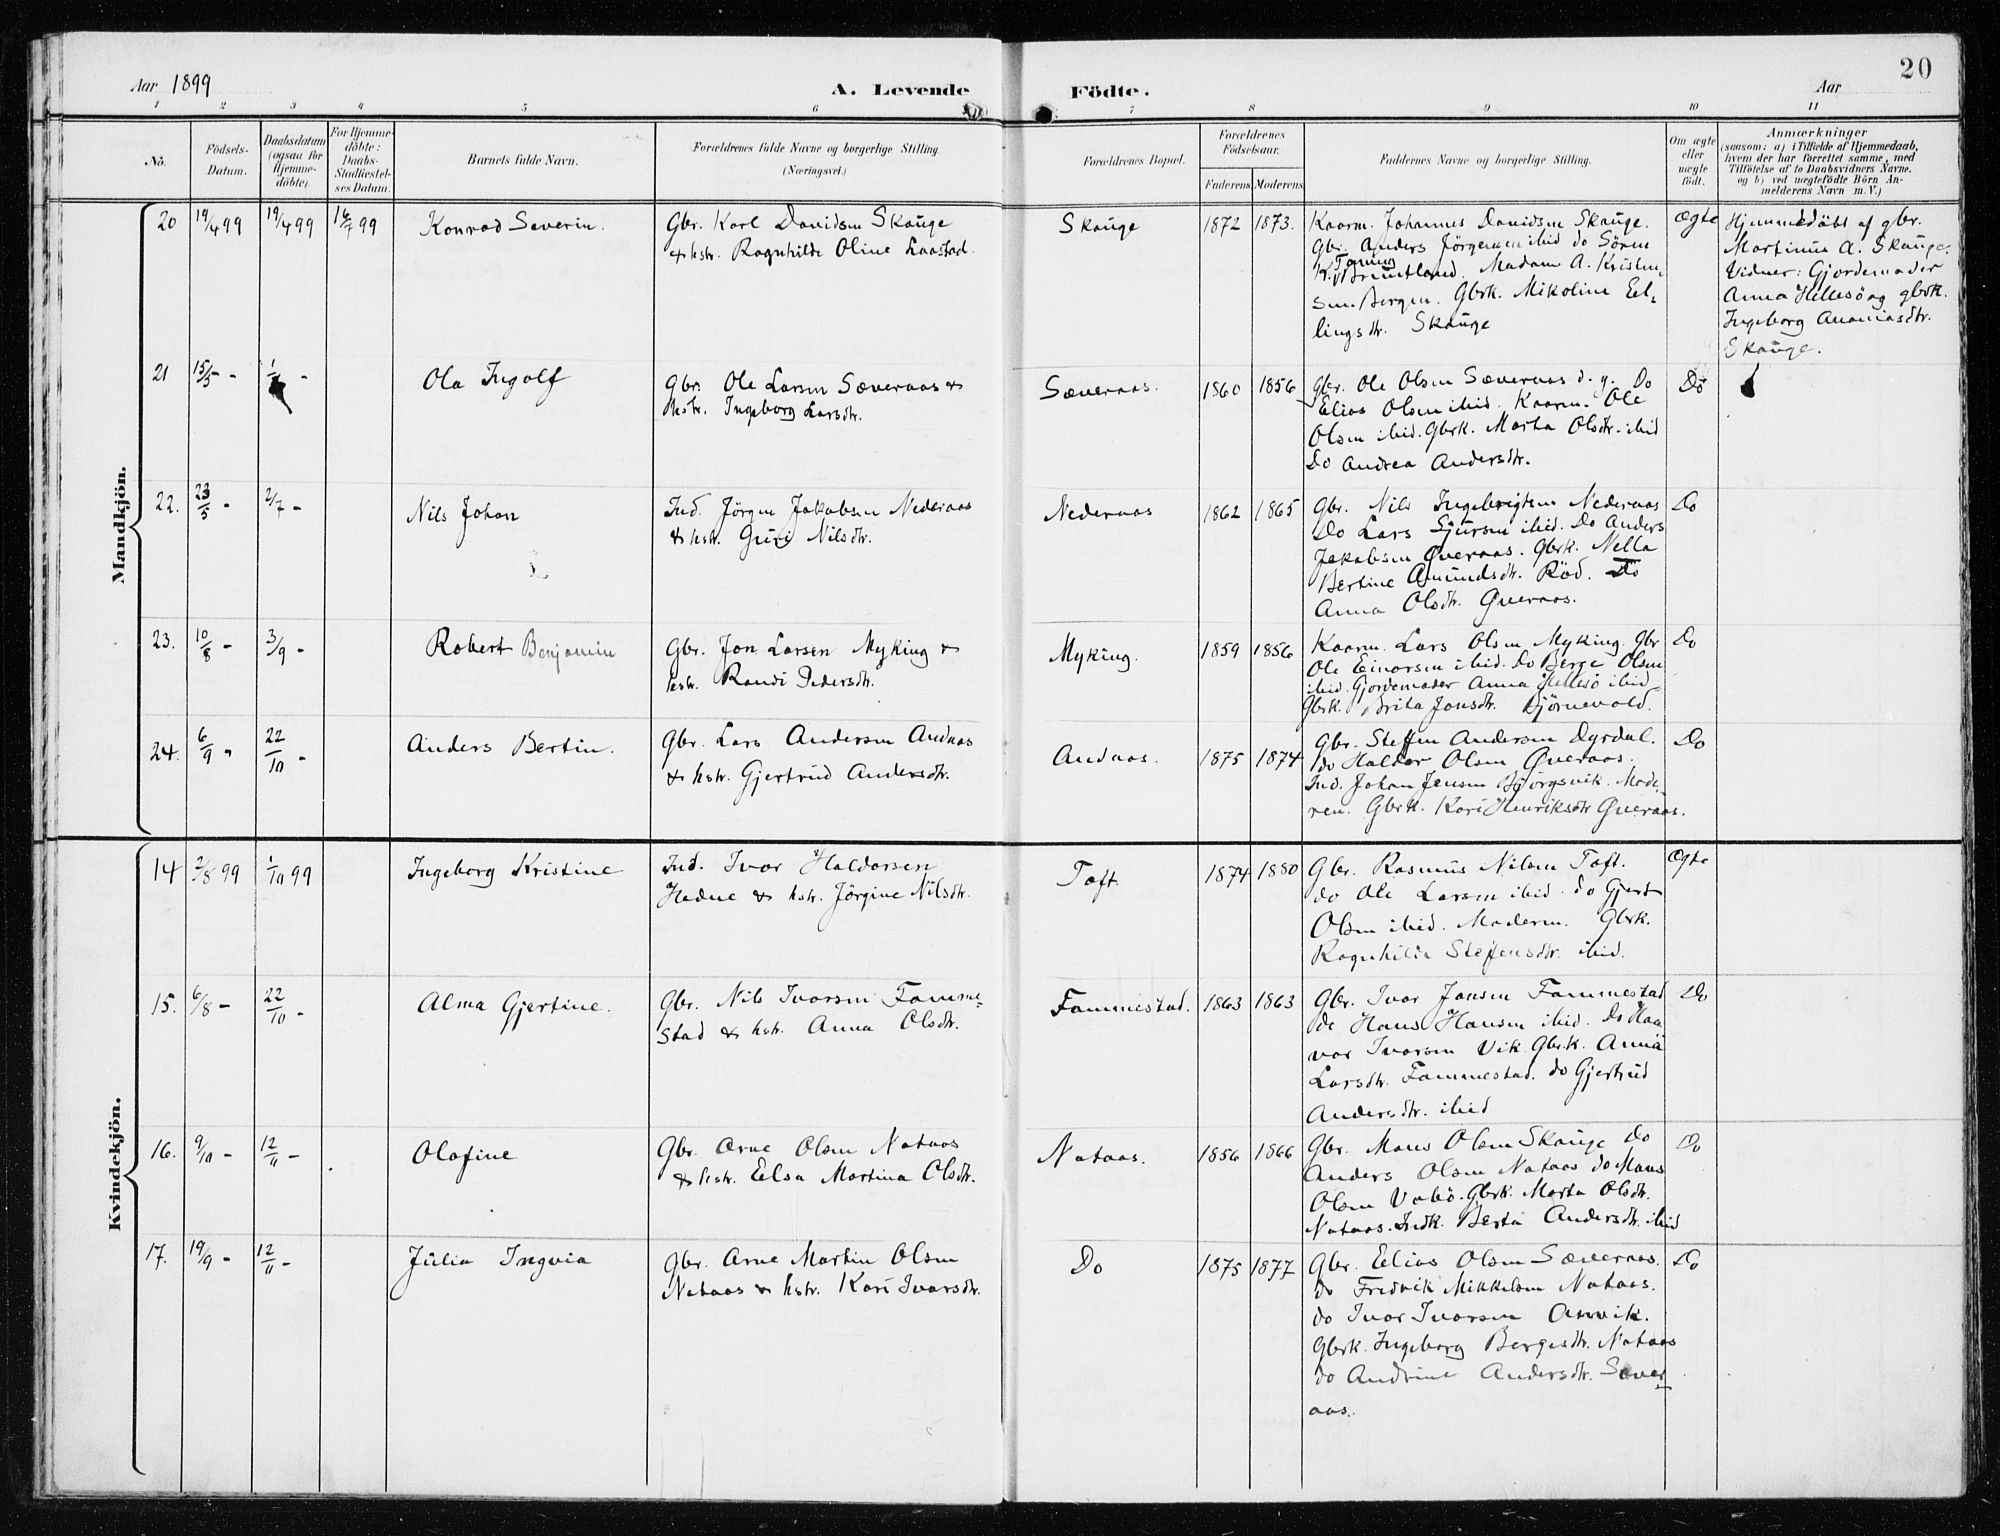 20
Aar 1899
A. Levende Födte.
Aar
1 2 3 4 5 6 7 8 9 10 11
No.
Födsels-
Datum.
Daabsdatum
(ogsaa for
Hjemme-
döbte).
For Hjemme-
döbte:
Daabs-
Stadfæstel-
ses Datum.
Barnets fulde Navn.
Forældrenes fulde Navne og borgerlige Stilling.
(Næringsvei.)
Forældrenes Bopæl.
Forældrenes
Födselsaar.
Faderens Moderens
Faddernes Navne og borgerlige Stilling.
Om ægte
eller
uægte
födt.
Anmærkninger
(saasom: a) i Tilfælde af Hjemmedaab,
hvem der har forrettet samme, med
Tilföielse af to Daabsvidners Navne.
og b) ved uægtefödte Börn An-
melderens Navn m. V.)
Mandkjön.
20 19/4 99 19/4 99 16/7 99 Konrad Severin.
Gbr. Karl Davidsen Skauge
& hstr. Ragnhilde Oline Laastad.
Skauge 1872 1873.
Kaarm. Johannes Davidsen Skauge.
Gbr. Anders Jörgensen ibid do Sören
Madam A. Kristen-
sen Bergen. Gbrk. Mikoline Eel-
lingsdtr. Skauge
Ægte
Hjemmedöbt af gbr.
Martinus A. Skauge.
Vidner: Gjordemoder
Anna Hellesö og gbrk.
Ingeborg Ananiasdtr.
Skauge.
21 15/5 - Ola Ingolf
Gbr. Ole Larsen Sæveraas &
hstr. Ingeborg Larsdtr.
Sæveraas. 1860 1856
Gbr. Ole Olsen Sæveraas d. y. Do
Elias Olsen ibid. Kaarm. Ole
Olsen ibid. Gbrk. Marta Olsdtr. ibid
Do Andrea Andersdtr.
Do
22. 23/5 - 2/7 - Nils Johan
Ind. Jörgen Jakobsen Nederaas
& hstr. Guri Nilsdtr.
Nederaas 1862 1865
Gbr. Nils Ingebrigtsen Nederaas
Do Lars Sjursen ibid. Do Anders
Jakobsen Overaas. Gbrk. Nella
Bertine Amundsdtr. Röd. Do
Anna Olsdtr. Overaas.
Do
23. 10/8 - 3/9 - Robert Benjamin
Gbr. Jon Larsen Myking &
hstr. Randi Pedersdtr.
Myking. 1859 1856
Kaarm. Lars Olsen Myking. Gbr
Ole Einarsen ibid. Do Berge Olsen
ibid. Gjordemoder Anna Hellesö ibid
Gbrk. Brita Jonsdtr. Björnevold.
Do
24. 6/9 " 22/10 - Anders Bertin.
Gbr. Lars Andersen Andaas
& hstr. Gjertrud Andersdtr.
Andaas. 1875 1874
Gbr. Steffen Andersen Dyrdal.
do Haldor Olsen Overaas.
Ind. Johan Jensen Bjorgsvik. Mode-
ren. Gbrk. Kari Henriksdtr Overaas.
Do
Kvindekjön.
14 2/8 99 1/10 99 Ingeborg Kristine
Ind. Ivar Haldorsen
Hedne & hstr. Jörgine Nilsdtr.
Toft. 1874 1880
Gbr. Rasmus Nilsen Toft.
do Ole Larsen ibid. do Gjert
Olsen ibid. Moderen. Gbrk.
Ragnhilda Steffensdtr. ibid.
Ægte
15. 6/8 - 22/10 - Alma Gjertine.
Gbr. Nils Ivarsen Famme-
stad & hstr. Anna Olsdtr.
Fammestad. 1863 1863
Gbr. Ivar Jansen Fammestad
do Hans Hansen ibid. Do Haa
var Ivarsen Vik. Gbrk. Anna
Larsdtr. Fammestad. do Gjertrud
Andersdtr. ibid
Do
16. 9/10 - 12/11 - Olafine
Gbr. Arne Olsen Nataas
& hstr. Eelsa Martina Olsdtr.
Nataas. 1856 1866
Gbr. Mons Olsen Skauge Do
Anders Olsen Nataas do Mons
Olsen Vabö. Gbrk. Marta Olsdtr.
Nataas. Indk. Berta Andersdtr. ibid
Do
17. 19/9 - 12/11 - Julia Ingvia
Gbr. Arne Martin Olsen
Nataas & hstr. Kari Ivarsdtr.
Do 1875 1877
Gbr. Elias Olsen Sæveraas.
do Fredrik Mikkelsen Nataas.
do Ivar Ivarsen
Gbrk. Ingeborg Bergesdtr. Nataas
do Andrine Andersdtr. Sæver-
aas.
Do